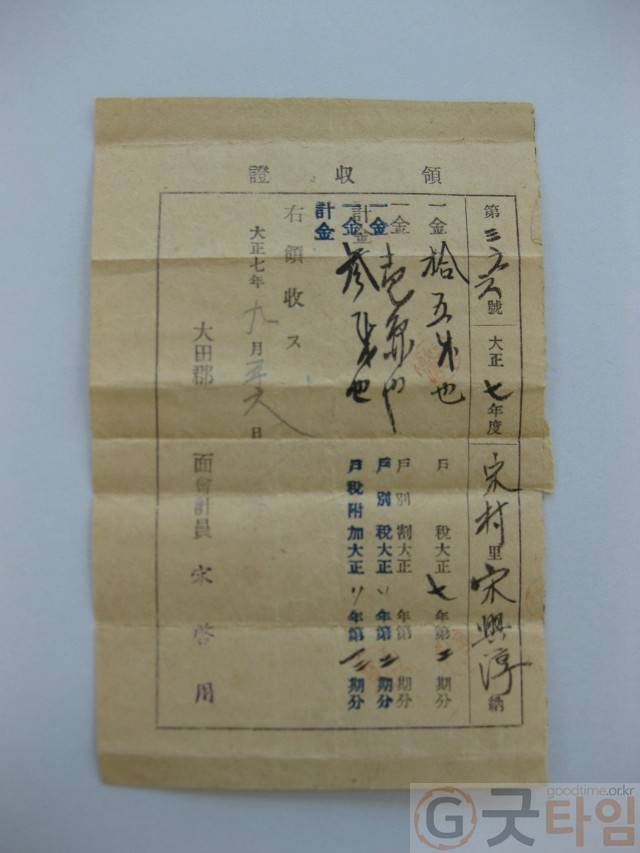 領收證
第三 六號 大正七年度 宋村里 宋興淳 納
一金 拾五 也 戶稅大正七年第二期分
一金 戶別割大正 年第 期分
一金 也 戶別稅大正〃年第二期分
計金
一金 參 也 戶稅附加大正〃年第 期分
計金
右領收ス
大正七年九月 六日
大田郡 面會計員 宋啓用
goodtime.or.kr
G굿타임